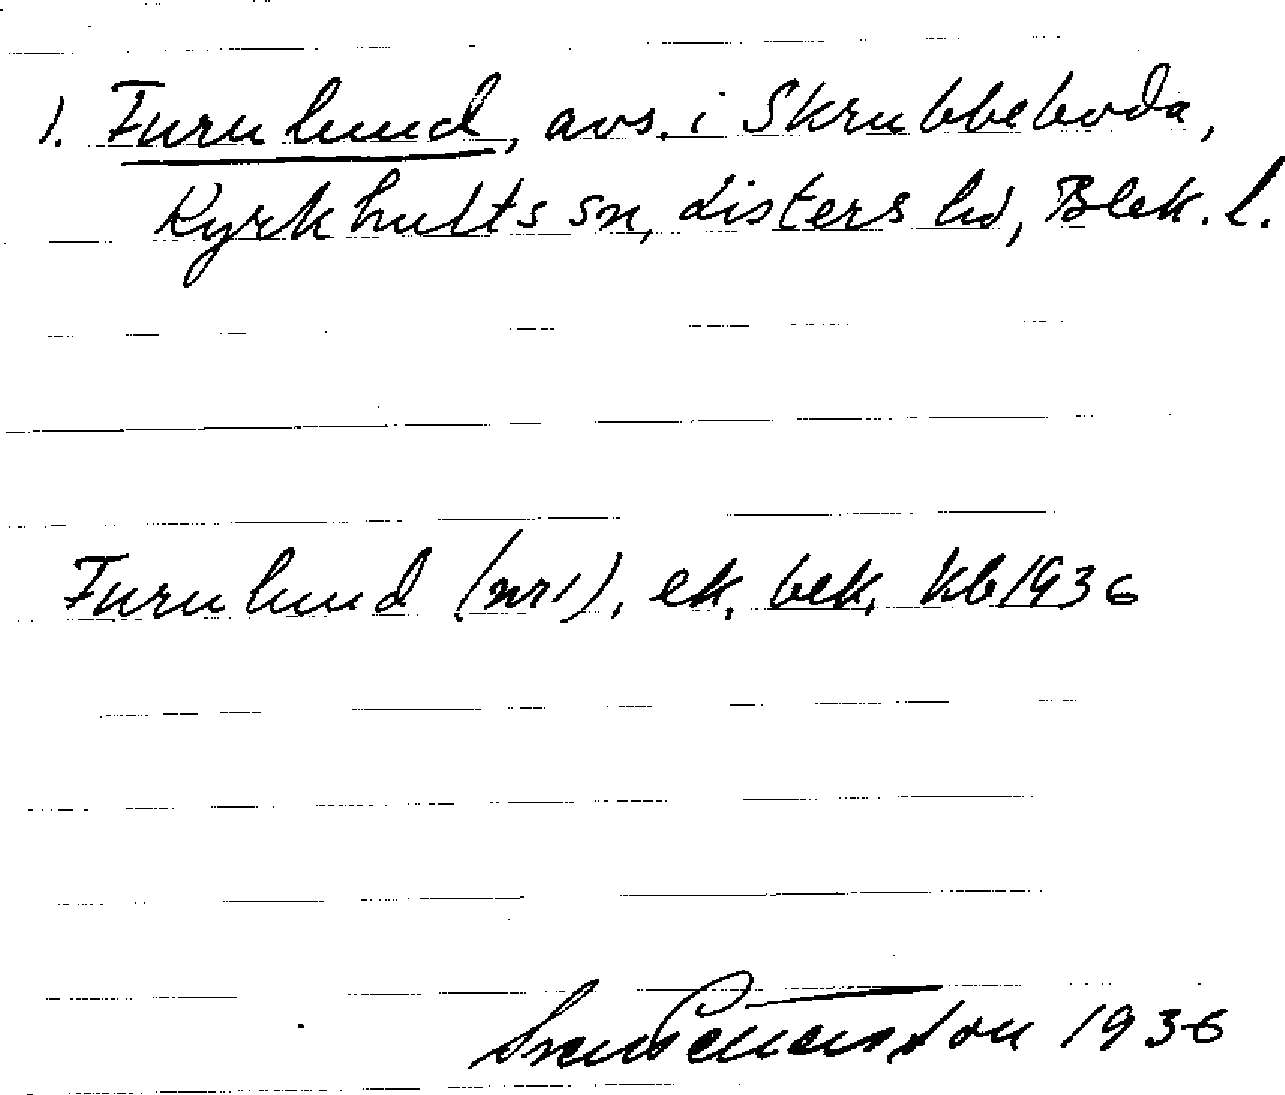 1. Furulund, avs. i Skrubbeboda,
Kyrkhults sn, Listers hd, Blek. l.
Furulund (nr 1), ek. bek. kb 1936
Sven Benson 1936